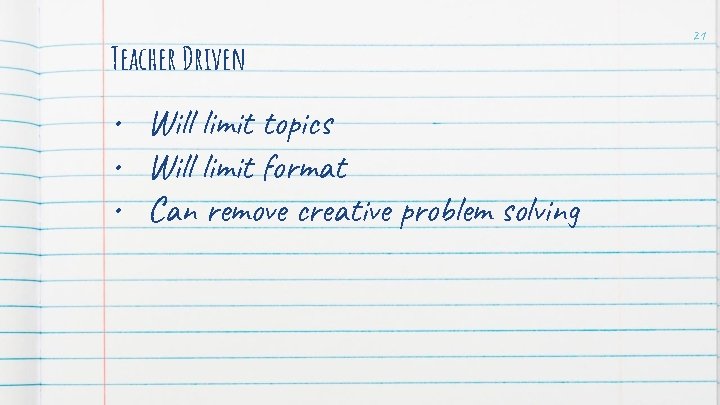 21
Teacher Driven
• Will limit topics
• Will limit format
• Can remove creative problem solving